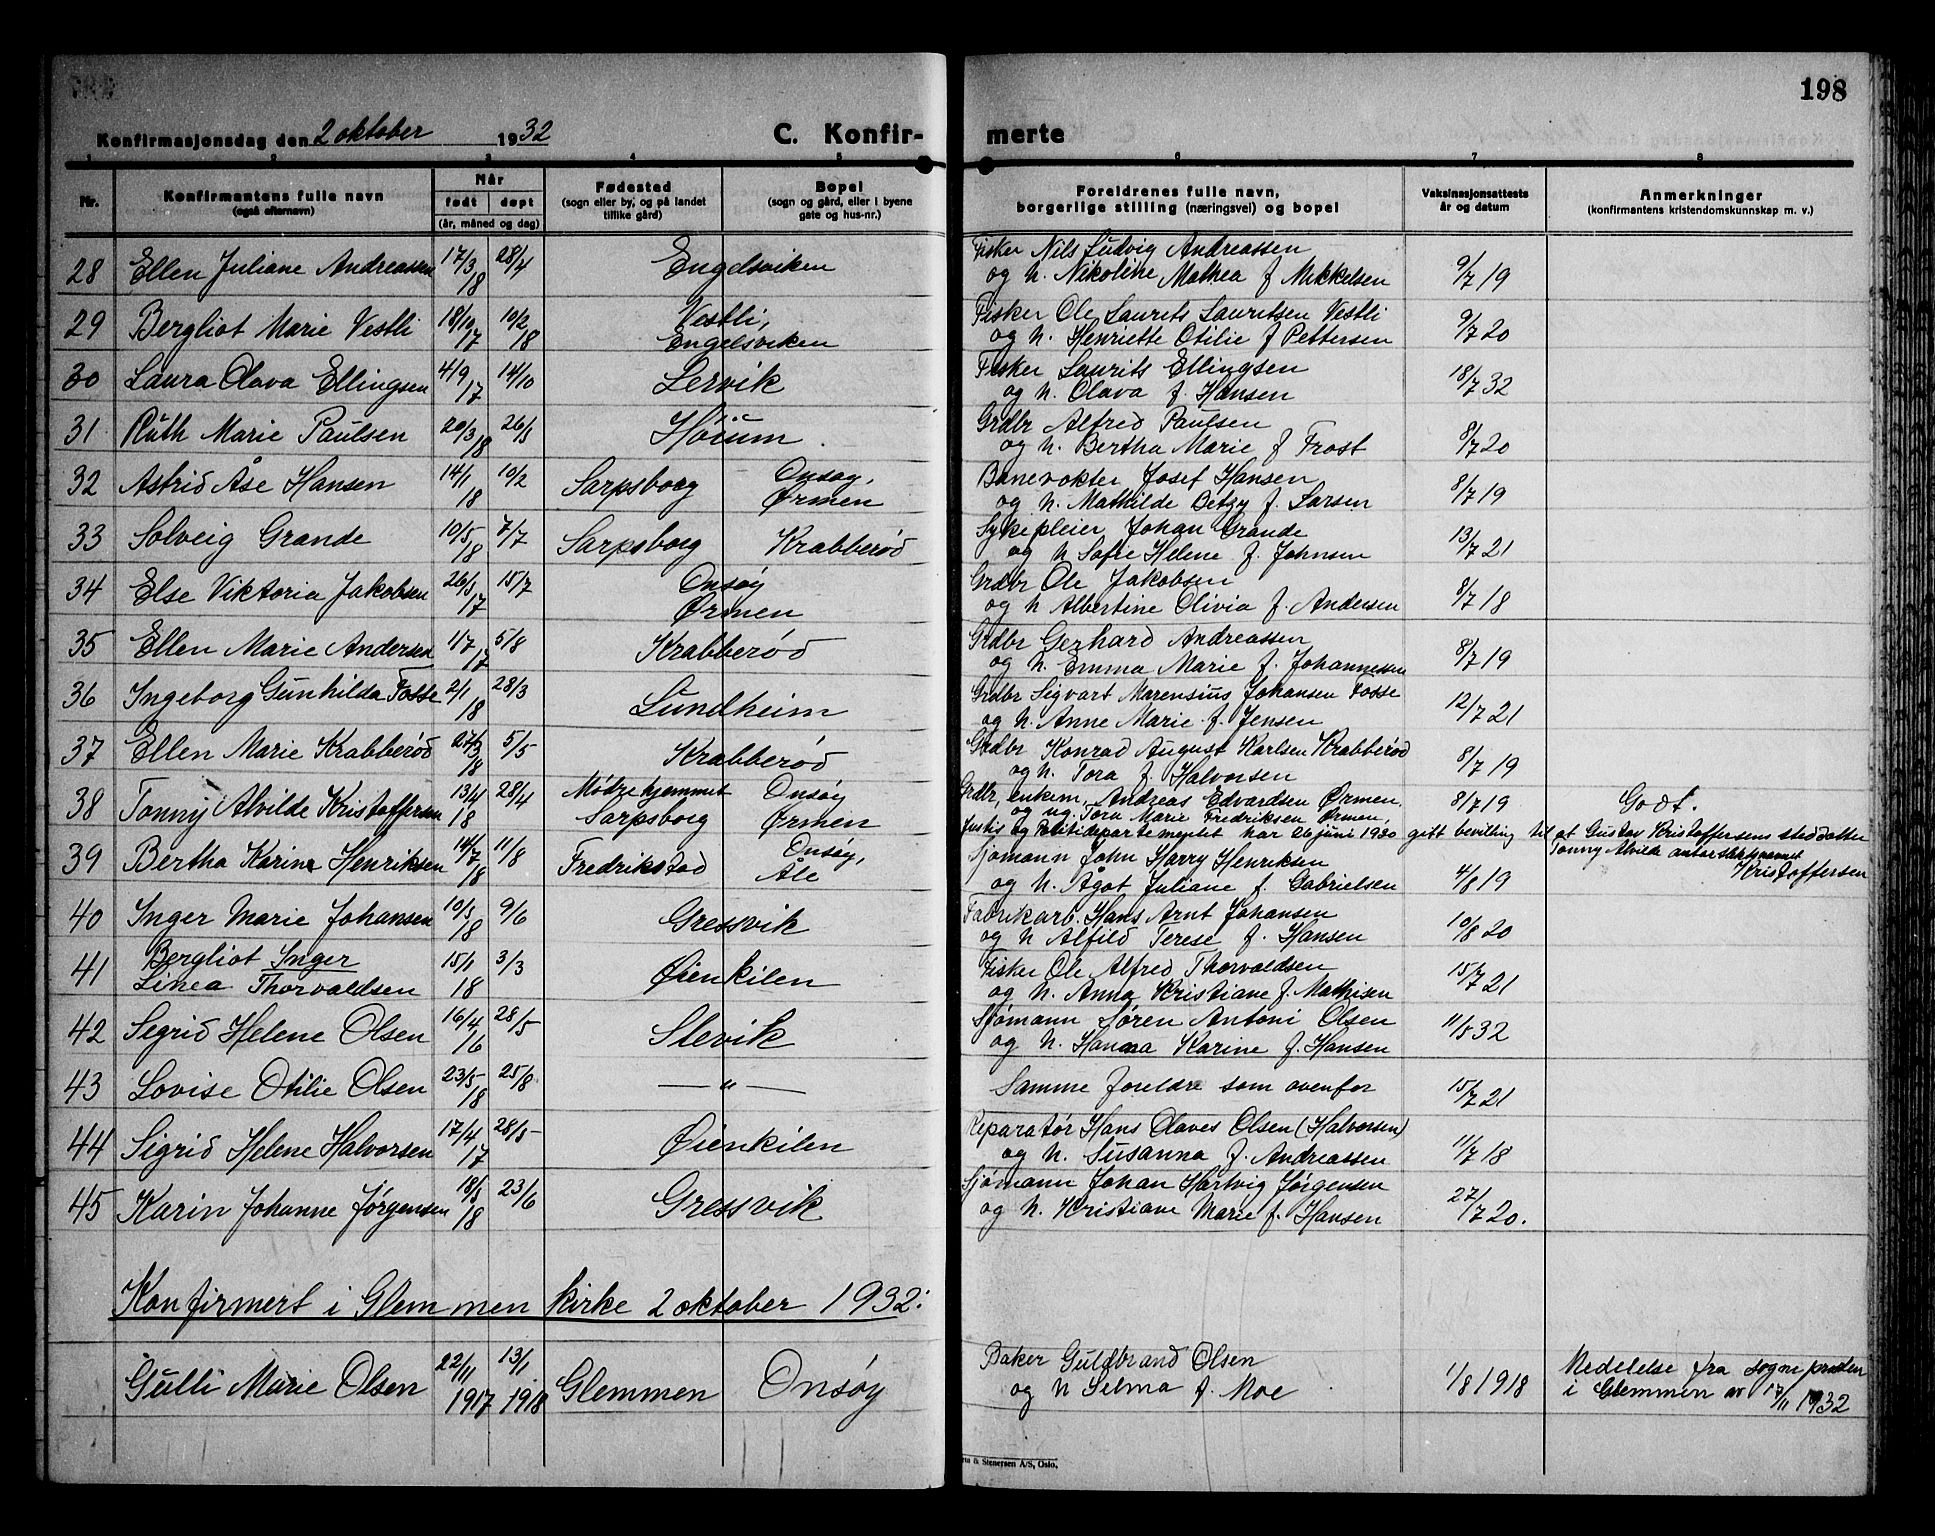 198
Konfirmasjonsdag den 2 oktober 1932
C. Konfirmerte
1 2 3 4 5 6 7 8
Nr.
Konfirmantens fulle navn
(også efternavn)
Når
født døpt
(år, måned og dag)
Fødested
(sogn eller by, og på landet
tillike gård)
Bopel
(sogn og gård, eller i byene
gate og hus-nr.)
Foreldrenes fulle navn,
borgerlige stilling (næringsvei) og bopel
Vaksinasjonsattests
år og datum
Anmerkninger
(konfirmantens kristendomskunnskap m. v.)
28 Ellen Juliane Andreassen 17/3 18 28/4 Engelsviken Fisker Nils Ludvig Andreassen
og h. Nikoline Mathea f Mikkelsen 9/7 19
29 Bergliot Marie Vestli 18/10 17 10/2 18 Vestli,
Engelsviken Fisker Ole Laurits Lauritsen Vestli
og h. Henriette Otilie f Pettersen 9/7 20
30 Laura Olava Ellingsen 4/9 17 14/10 Lervik Fisker Laurits Ellingsen
og h. Olava f. Hansen 18/7 32
31 Ruth Marie Paulsen 20/3 18 26/5 Høium Grdbr Alfred Paulsen
og h. Bertha Marie f Frost 8/7 20
32 Astrid Åse Hansen 14/1 18 10/2 Sarpsborg Onsøy,
Ørmen Banevokter Josef Hansen
og h. Mathilde Betzy f. Larsen 8/7 19
33 Solveig Grande 10/5 18 7/7 Sarpsborg Krabberød Sykepleier Johan Grande
og h Sofie Helene f. Johnsen 13/7 21
34 Else Viktoria Jakobsen 26/5 17 15/7 Onsøy
Ørmen Grdbr Ole Jakobsen
og h Albertine Olivia f. Andersen 8/7 18
35 Ellen Marie Andersen 1/7 17 5/8 Krabberød Grdbr Gerhard Andreassen
og h. Emma Marie f. Johannesen 8/7 19
36 Ingeborg Gunhilda Fosse 2/1 18 28/3 Lundheim Grdbr Sigvart Marensius Johansen Fosse
og h. Anne Marie f. Jensen 12/7 21
37 Ellen Marie Krabberød 18 5/5 Krabberød Grdbr Konrad August Karlsen Krabberød
og h. Tora f. Halvorsen 8/7 19
38 Tonny Alvilde Kristoffersen 13/4 18 28/4 Mødrehjemmet
Sarpsborg Onsøy
Ørmen Grdbr, enkem, Andreas Edvardsen Ørmen
og ug. Tora Marie Fredriksen Ørmen, 8/7 19 Godt.
Justis og Politidepartementet har 26 juni 1930 gitt bevilling til at Gustav Kristoffersens steddatter
Tonny Alvilde antar slektsnavnet
Kristoffersen
39 Bertha Karine Henriksen 14/7 18 11/8 Fredrikstad Onsøy,
Åle Sjømann John Harry Henriksen
og h. Ågot Juliane f. Gabrielsen 4/8 19
40 Inger Marie Johansen 10/5 18 9/6 Gressvik Fabrikarb. Hans Arnt Johansen
og h Alfild Terese f. Hansen 10/8 20
41 Bergliot Inger
Linea Thorvaldsen 15/1 18 3/3 Øienkilen Fisker Ole Alfred Thorvaldsen
og h. Anna Kristiane f. Mathisen 15/7 21
42 Sigrid Helene Olsen 16/4 16 28/5 Slevik Sjømann Søren Antoni Olsen
og h. Hanna Karine f. Hansen 11/5 32
43 Lovise Otilie Olsen 23/5 18 25/8 — " — Samme foreldre som ovenfor 15/7 21
44 Sigrid Helene Halvorsen 17/4 17 28/5 Øienkilen Reparatør Hans Olaves Olsen (Halvorsen)
og h. Susanna f. Andreassen 11/7 18
45 Karin Johanne Jørgensen 18/5 18 23/6 Gressvik Sjømann Johan Hartvig Jørgensen
og h. Kristiane Marie f. Hansen 27/7 20.
Konfirmert i Glemmen kirke 2 oktober 1932:
Gulli Marie Olsen 22/11 1917 13/1 1918 Glemmen Onsøy Baker Guldbrand Olsen
og h Selma f. Moe 1/8 1918 Meddelelse fra sognepresten
i Glemmen av 17/11 1932
& Stenersen A/S, Oslo.